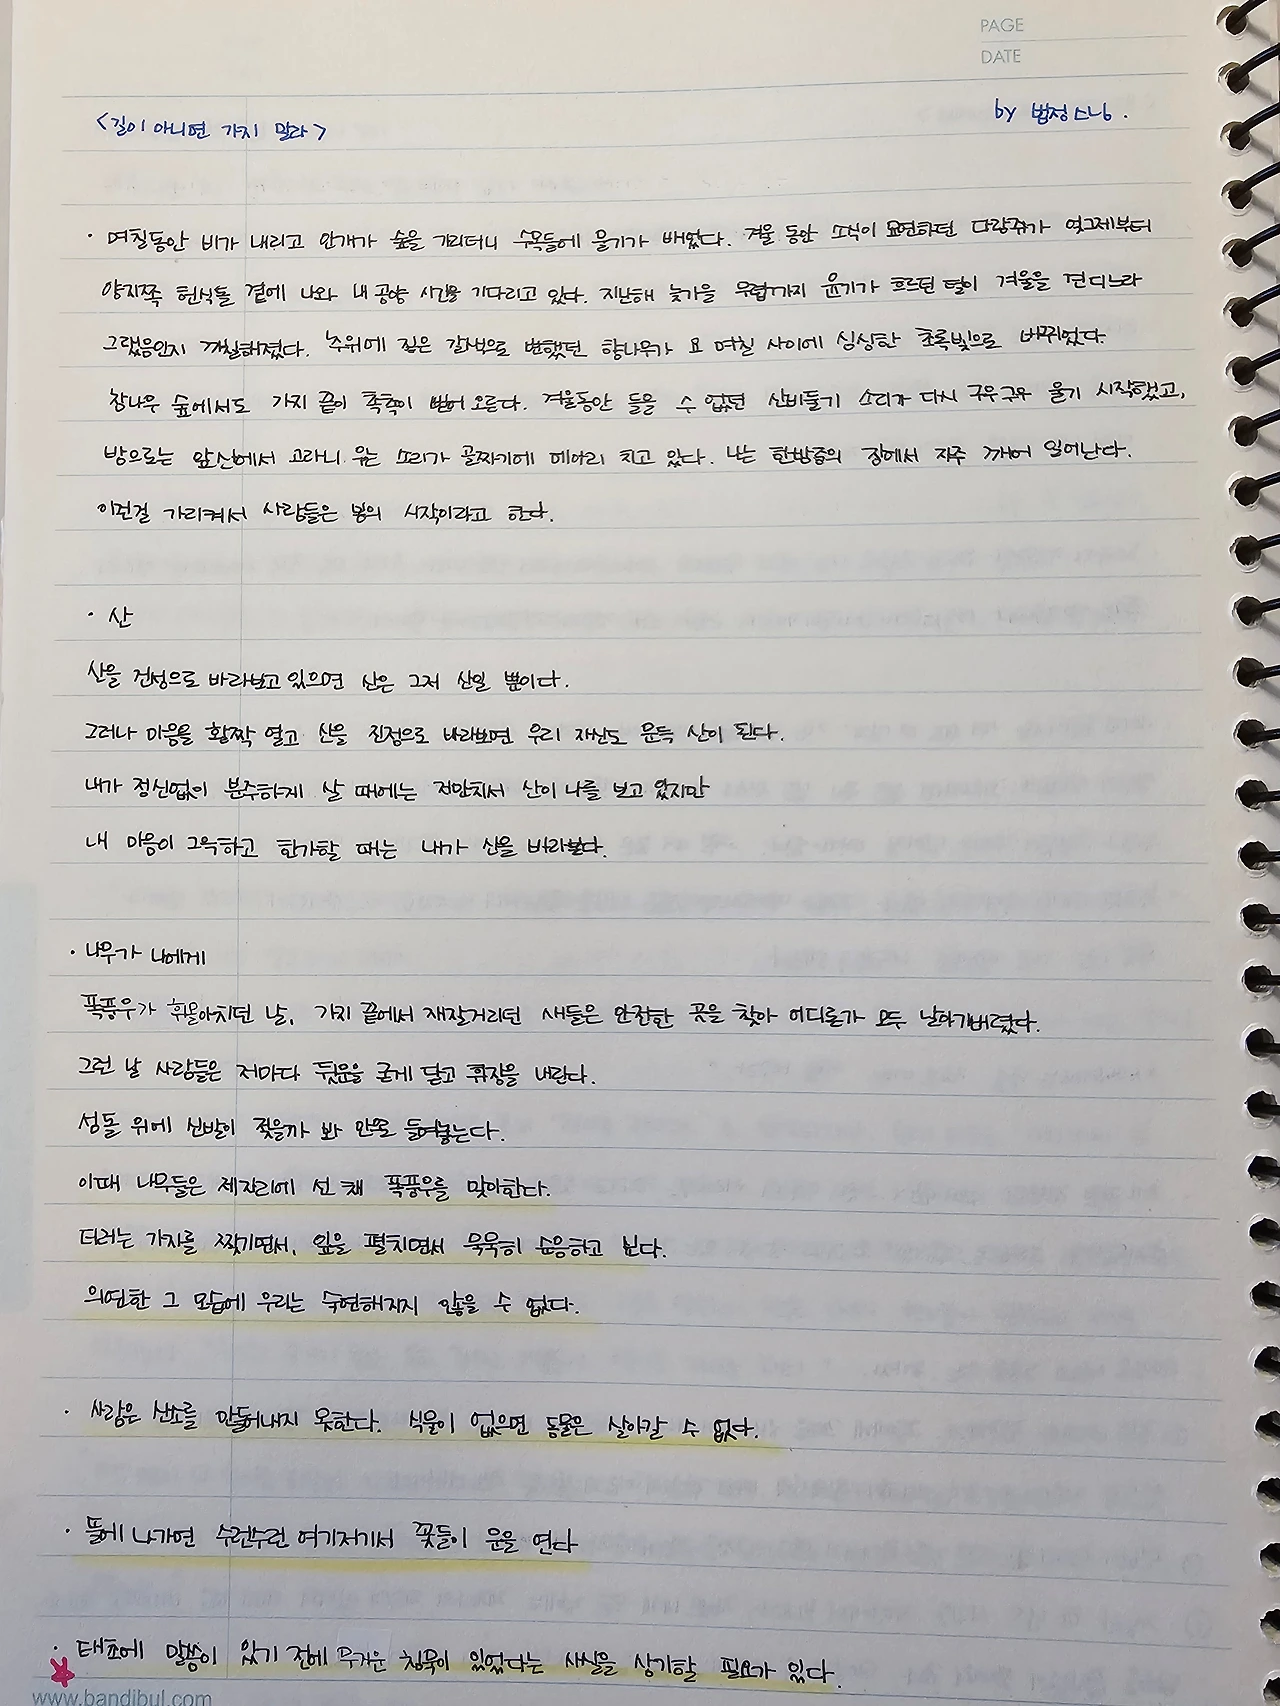 PAGE
DATE
<길이 아니면 가지 말라> by 법정스님.
· 며칠동안 비가 내리고 안개가 숲을 가리더니 수목들에 물기가 배었다. 겨울 동안 소식이 묘연하던 다람쥐가 엊그제부터
양지쪽 헌식돌 곁에 나와 내 공양 시간을 기다리고 있다. 지난해 늦가을 무렵까지 윤기가 흐르던 털이 겨울을 견디느라
그랬음인지 까칠해졌다. 추위에 짙은 갈색으로 변했던 향나무가 요 며칠 사이에 싱싱한 초록빛으로 바뀌었다.
참나무 숲에서도 가지 끝이 촉촉이 뻗어 오른다. 겨울동안 들을 수 없던 산비둘기 소리가 다시 구우구우 울기 시작했고,
밤으로는 앞산에서 고라니 우는 소리가 골짜기에 메아리 치고 있다. 나는 한밤중의 잠에서 자주 깨어 일어난다.
이런걸 가리켜서 사람들은 봄의 시작이라고 한다.
· 산
산을 건성으로 바라보고 있으면 산은 그저 산일 뿐이다.
그러나 마음을 활짝 열고 산을 진정으로 바라보면 우리 자신도 문득 산이 된다.
내가 정신없이 분주하게 살 때에는 저만치서 산이 나를 보고 있지만
내 마음이 그윽하고 한가할 때는 내가 산을 바라본다.
· 나무가 나에게
폭풍우가 휘몰아치던 날, 가지 끝에서 재잘거리던 새들은 안전한 곳을 찾아 어디론가 모두 날아가버렸다.
그런 날 사람들은 저마다 뒷문을 굳게 닫고 휘장을 내린다.
섬돌 위에 신발이 젖을까 봐 안으로 들여놓는다.
이때 나무들은 제자리에 선 채 폭풍우를 맞이한다.
더러는 가지를 찢기면서, 잎을 펼치면서 묵묵히 순응하고 본다.
의연한 그 모습에 우리는 숙연해지지 않을 수 없다.
· 사람은 산소를 만들어내지 못한다. 식물이 없으면 동물은 살아갈 수 없다.
· 뜰에 나가면 수런수런 여기저기서 꽃들이 문을 연다
· 태초에 말씀이 있기 전에 무거운 침묵이 있었다는 사실을 상기할 필요가 있다.
www.bandibul.com